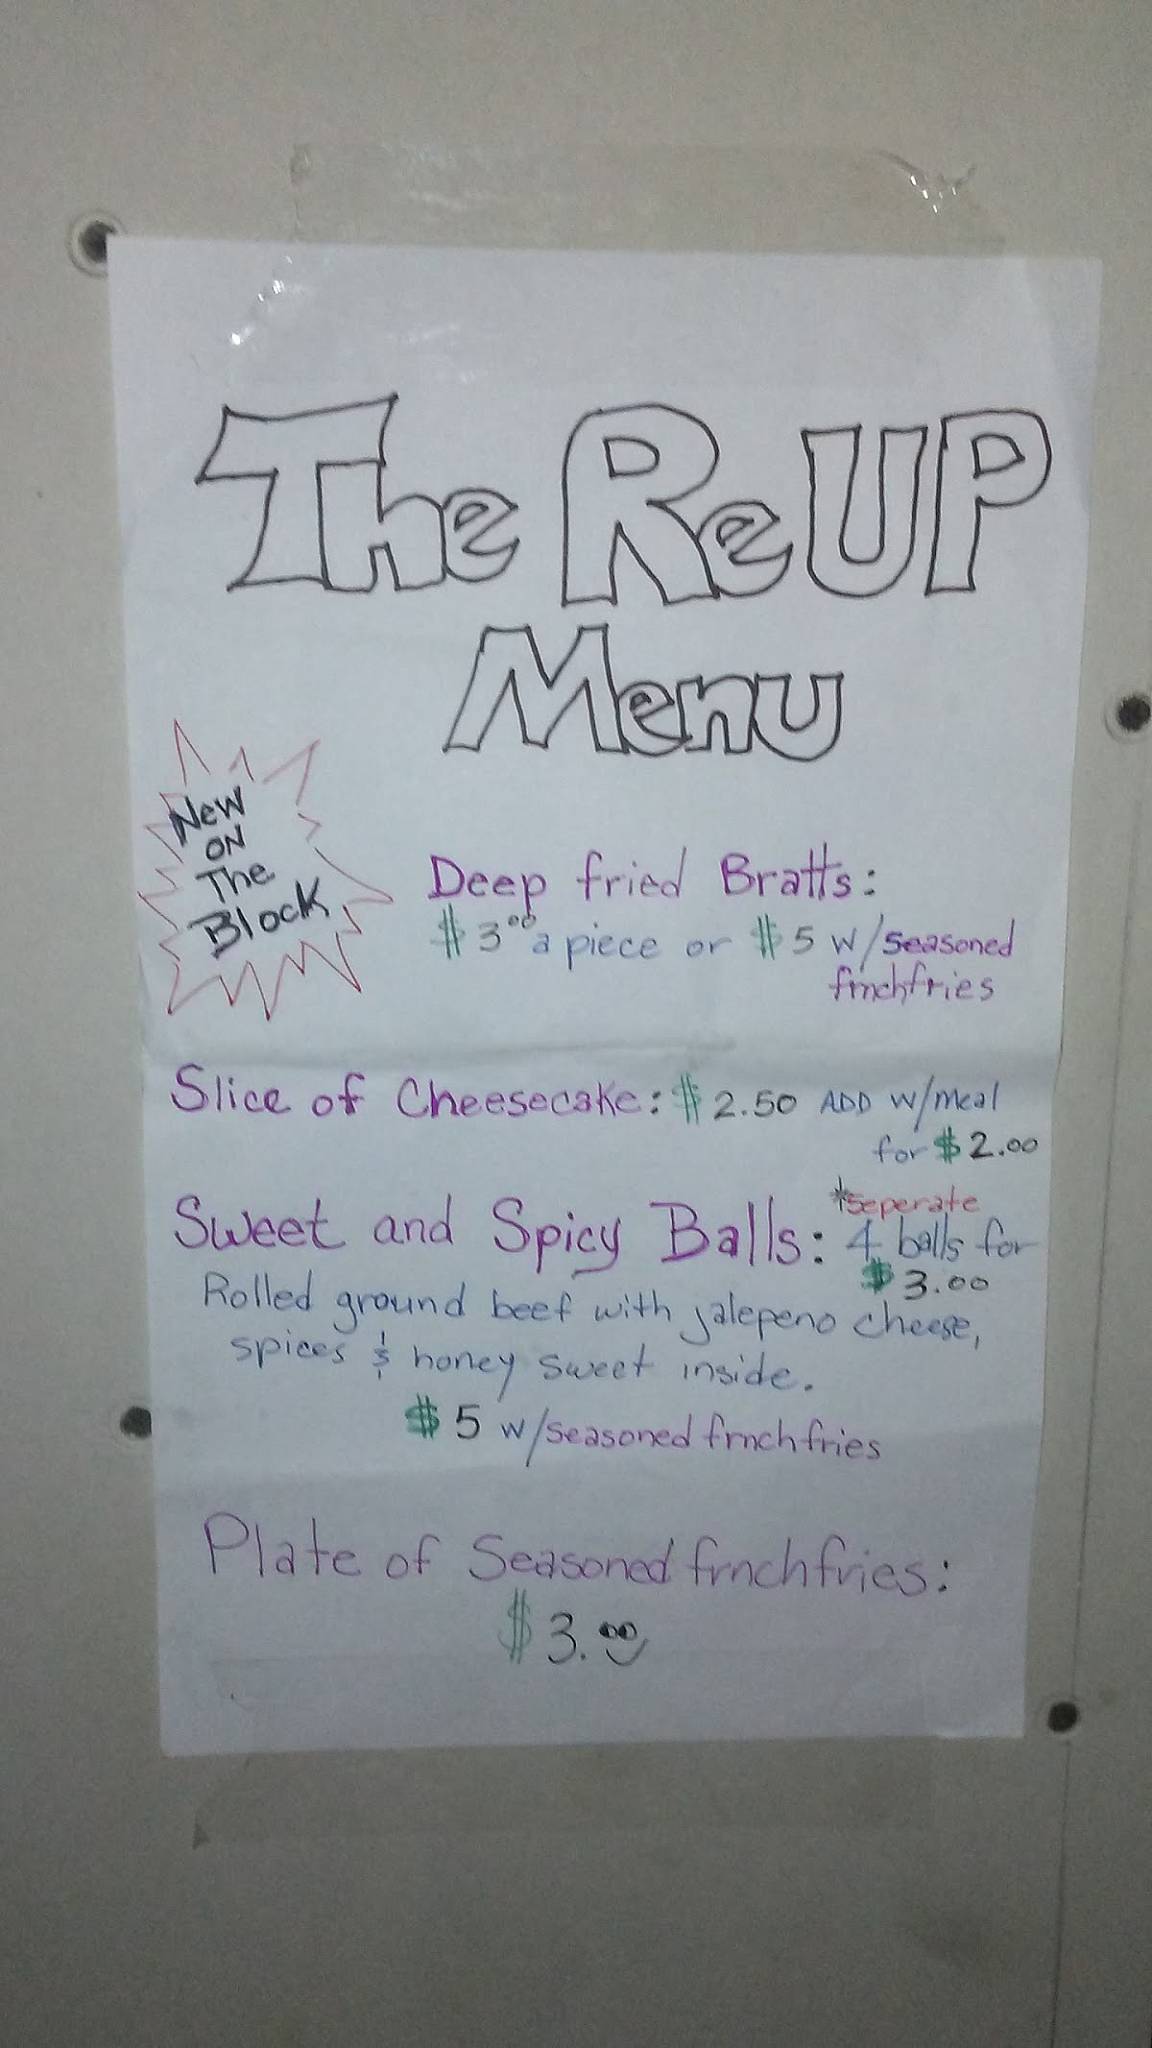 The ReUP
Menu
New
ON
The
Block
Deep fried Bratts:
$3.00 a piece or $5 w/seasoned
frnchfries
Slice of Cheesecake: $2.50 ADD w/meal
for $2.00
Sweet and Spicy Balls: *Seperate
4 balls for
$3.00
Rolled ground beef with jalepeno cheese,
spices & honey sweet inside.
$5 w/seasoned frnchfries
Plate of Seasoned frnchfries:
$3.00